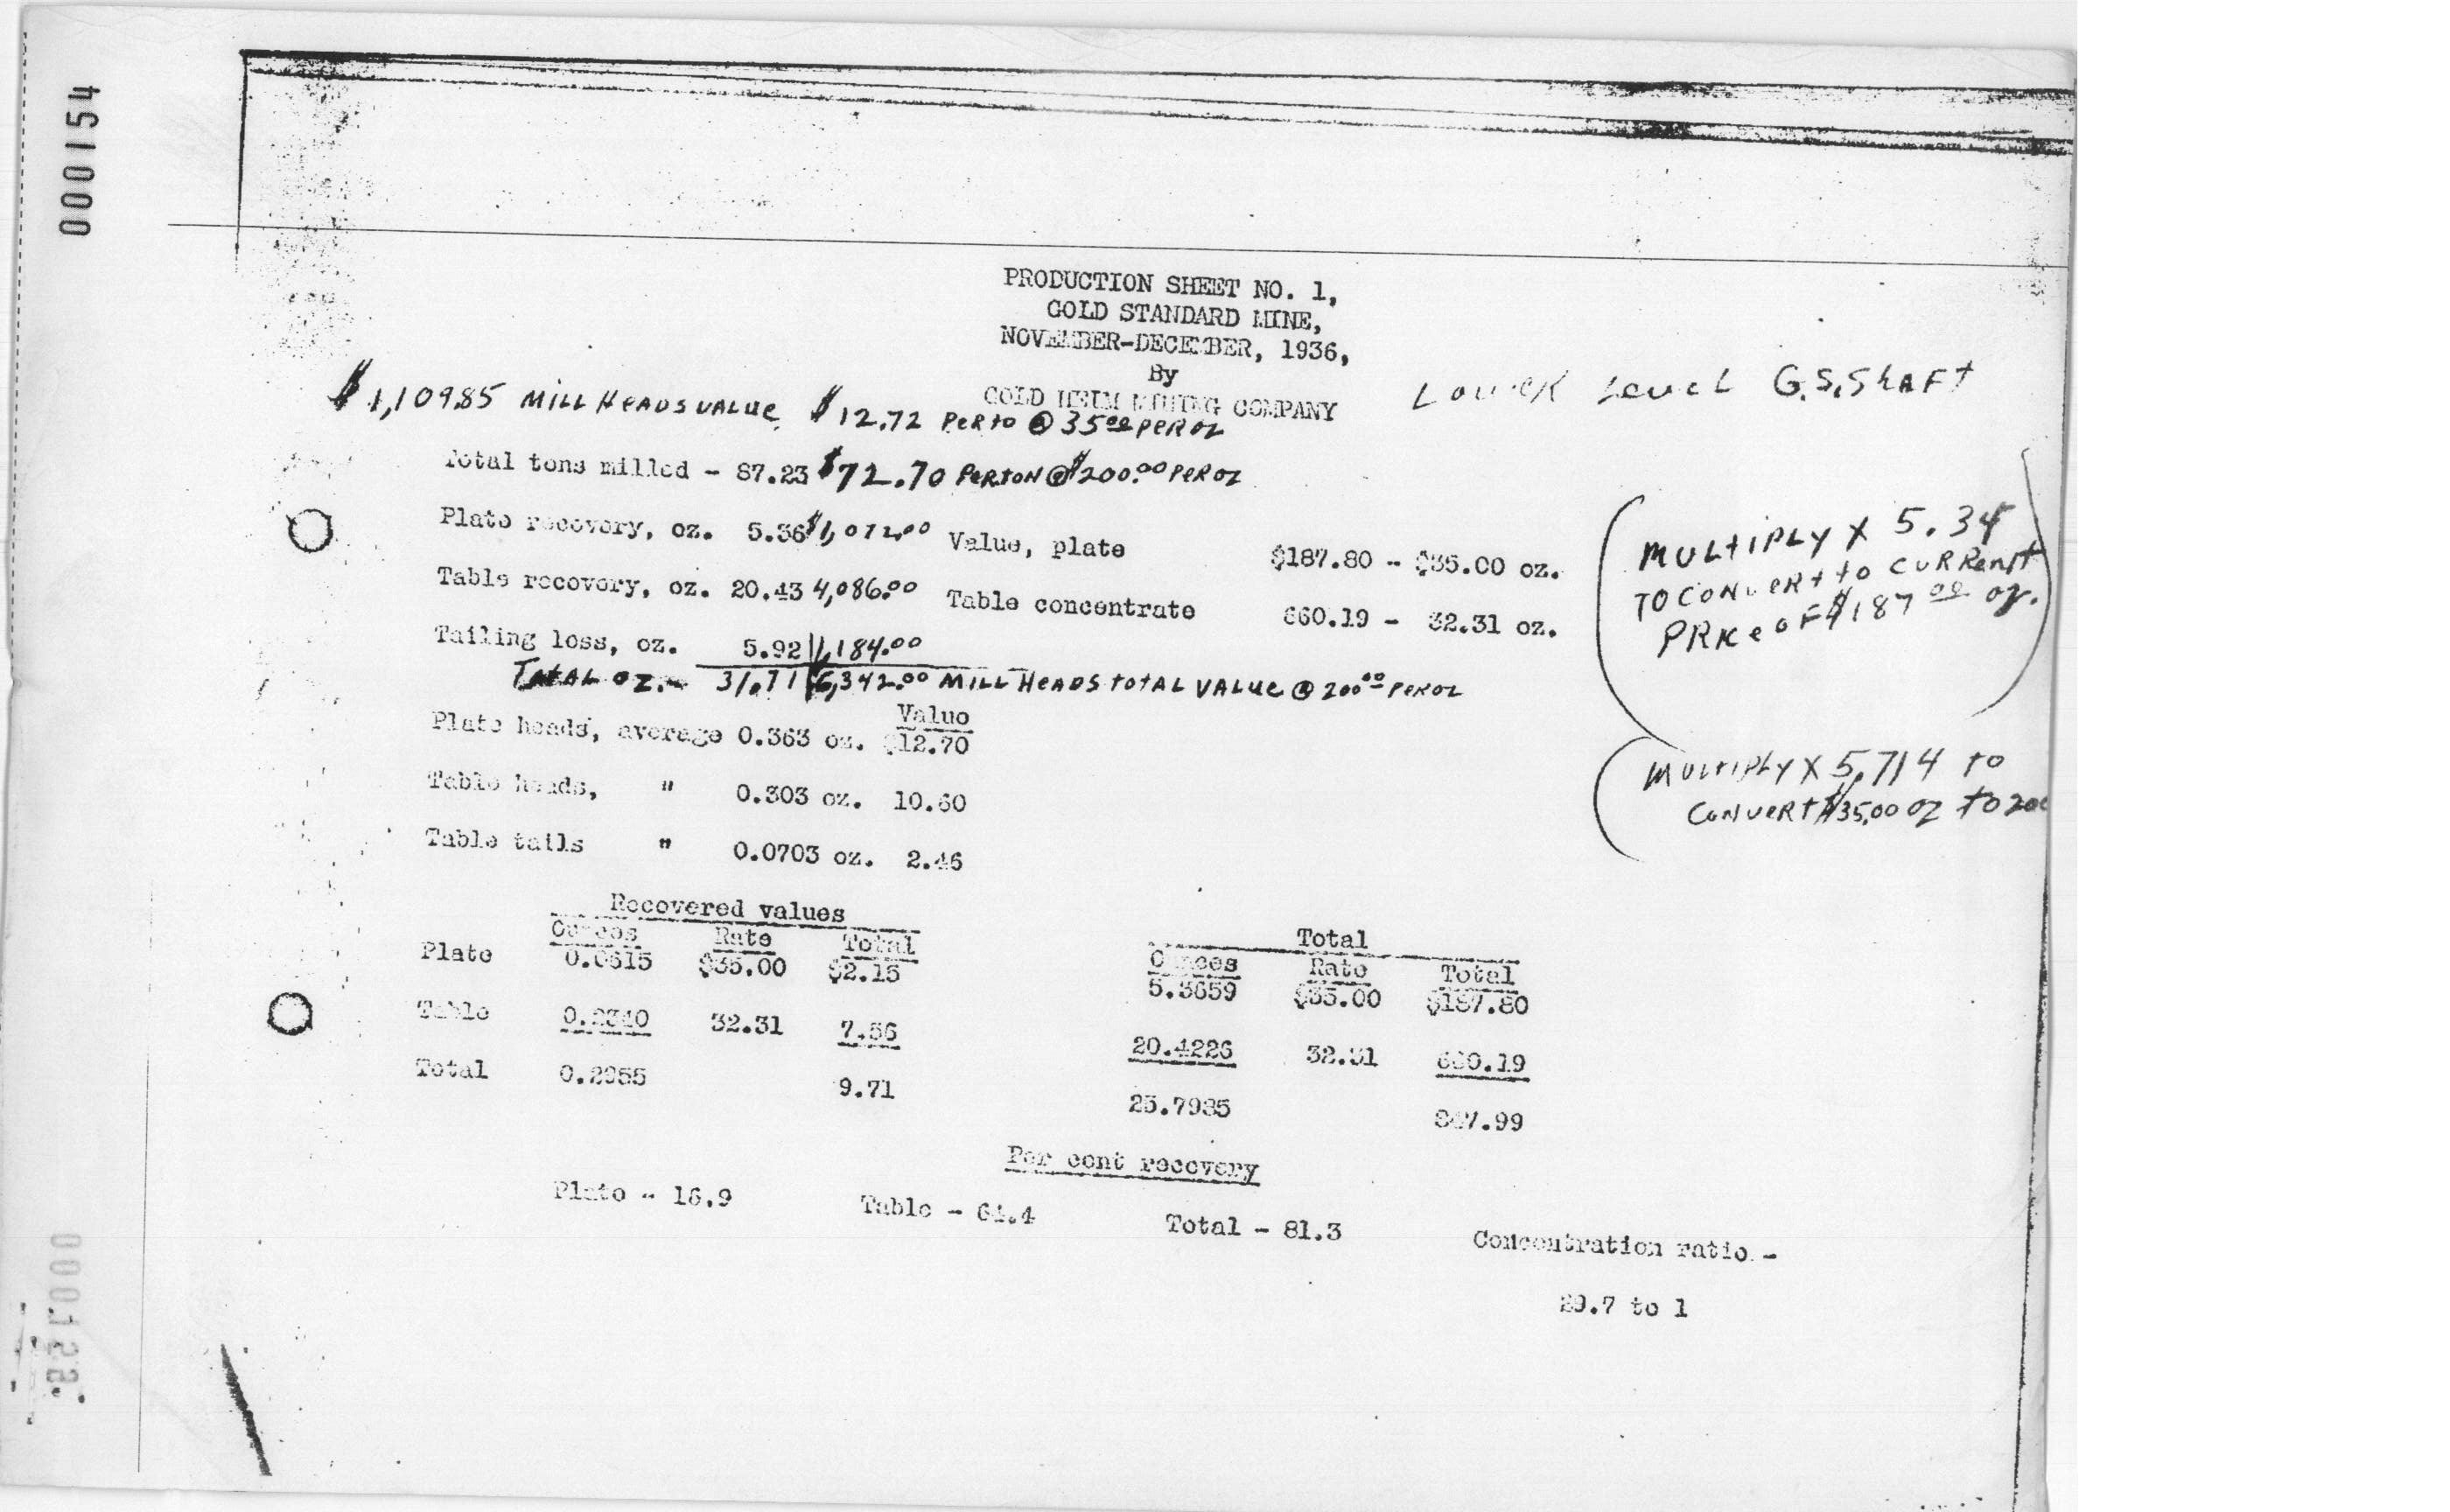 000154
PRODUCTION SHEET NO. 1,
GOLD STANDARD MINE,
NOVEMBER-DECEMBER, 1936,
By
GOLD HEIM MINING COMPANY
LOWER LEVEL G.S. SHAFT
$1,109.85 MILL HEADS VALUE $12.72 PER TO @ 35.00 PER OZ
Total tons milled - 87.23 $72.70 PER TON @ $200.00 PER OZ
Plate recovery, oz. 5.36 $1,072.00 Value, plate $187.80 - $35.00 oz.
Table recovery, oz. 20.43 4,086.00 Table concentrate 660.19 - 32.31 oz.
Tailing loss, oz. 5.92 1,184.00
TOTAL OZ. - 31.71 $6,342.00 MILL HEADS TOTAL VALUE @ 200.00 PER OZ
MULTIPLY X 5.34
TO CONVERT TO CURRENT
PRICE OF $187.00 oz.
MULTIPLY X 5.714 TO
CONVERT $35.00 OZ TO 200
Value
Plate heads, average 0.363 oz. $12.70
Table heads, " 0.303 oz. 10.60
Table tails " 0.0703 oz. 2.46
Recovered values
Ounces Rate Total
Plate 0.0615 $35.00 $2.15
Table 0.2340 32.31 7.56
Total 0.2955 9.71
Total
Ounces Rate Total
5.3659 $35.00 $187.80
20.4226 32.31 660.19
25.7985 847.99
Per cent recovery
Plate - 16.9 Table - 64.4 Total - 81.3 Concentration ratio -
29.7 to 1
000123